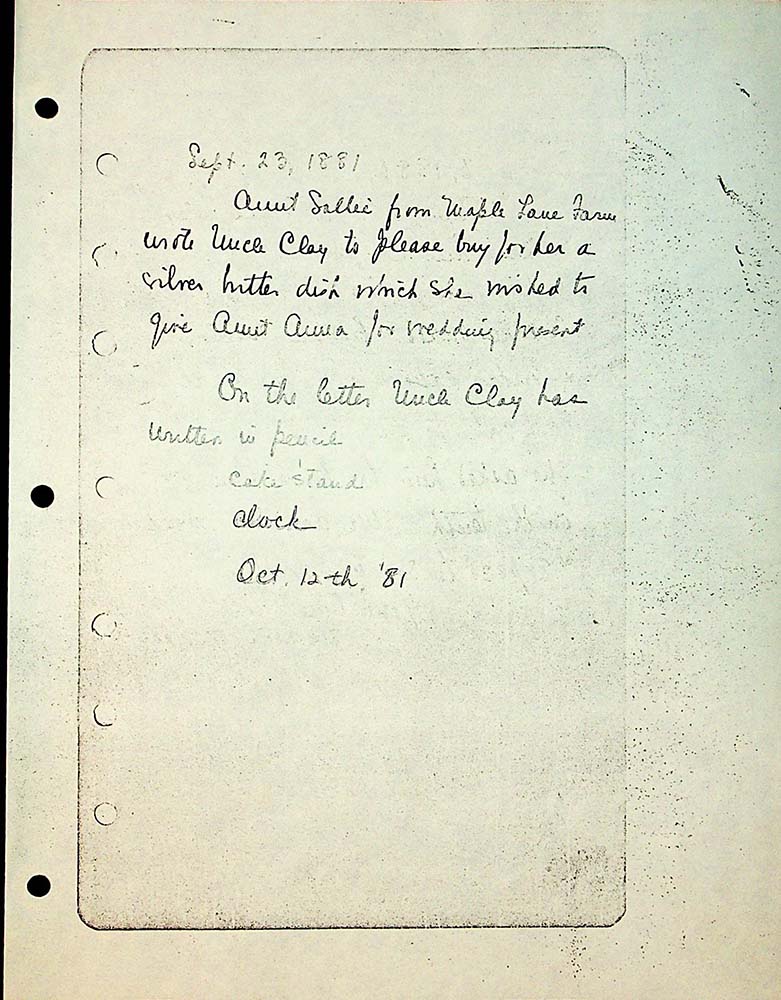 Sept. 23, 1881
Aunt Sallie from Maple Lane Farm
wrote Uncle Clay to please buy for her a
silver butter dish which she wished to
give Aunt Anna for wedding present
On the letter Uncle Clay has
written in pencil
cake stand
clock
Oct. 12th '81